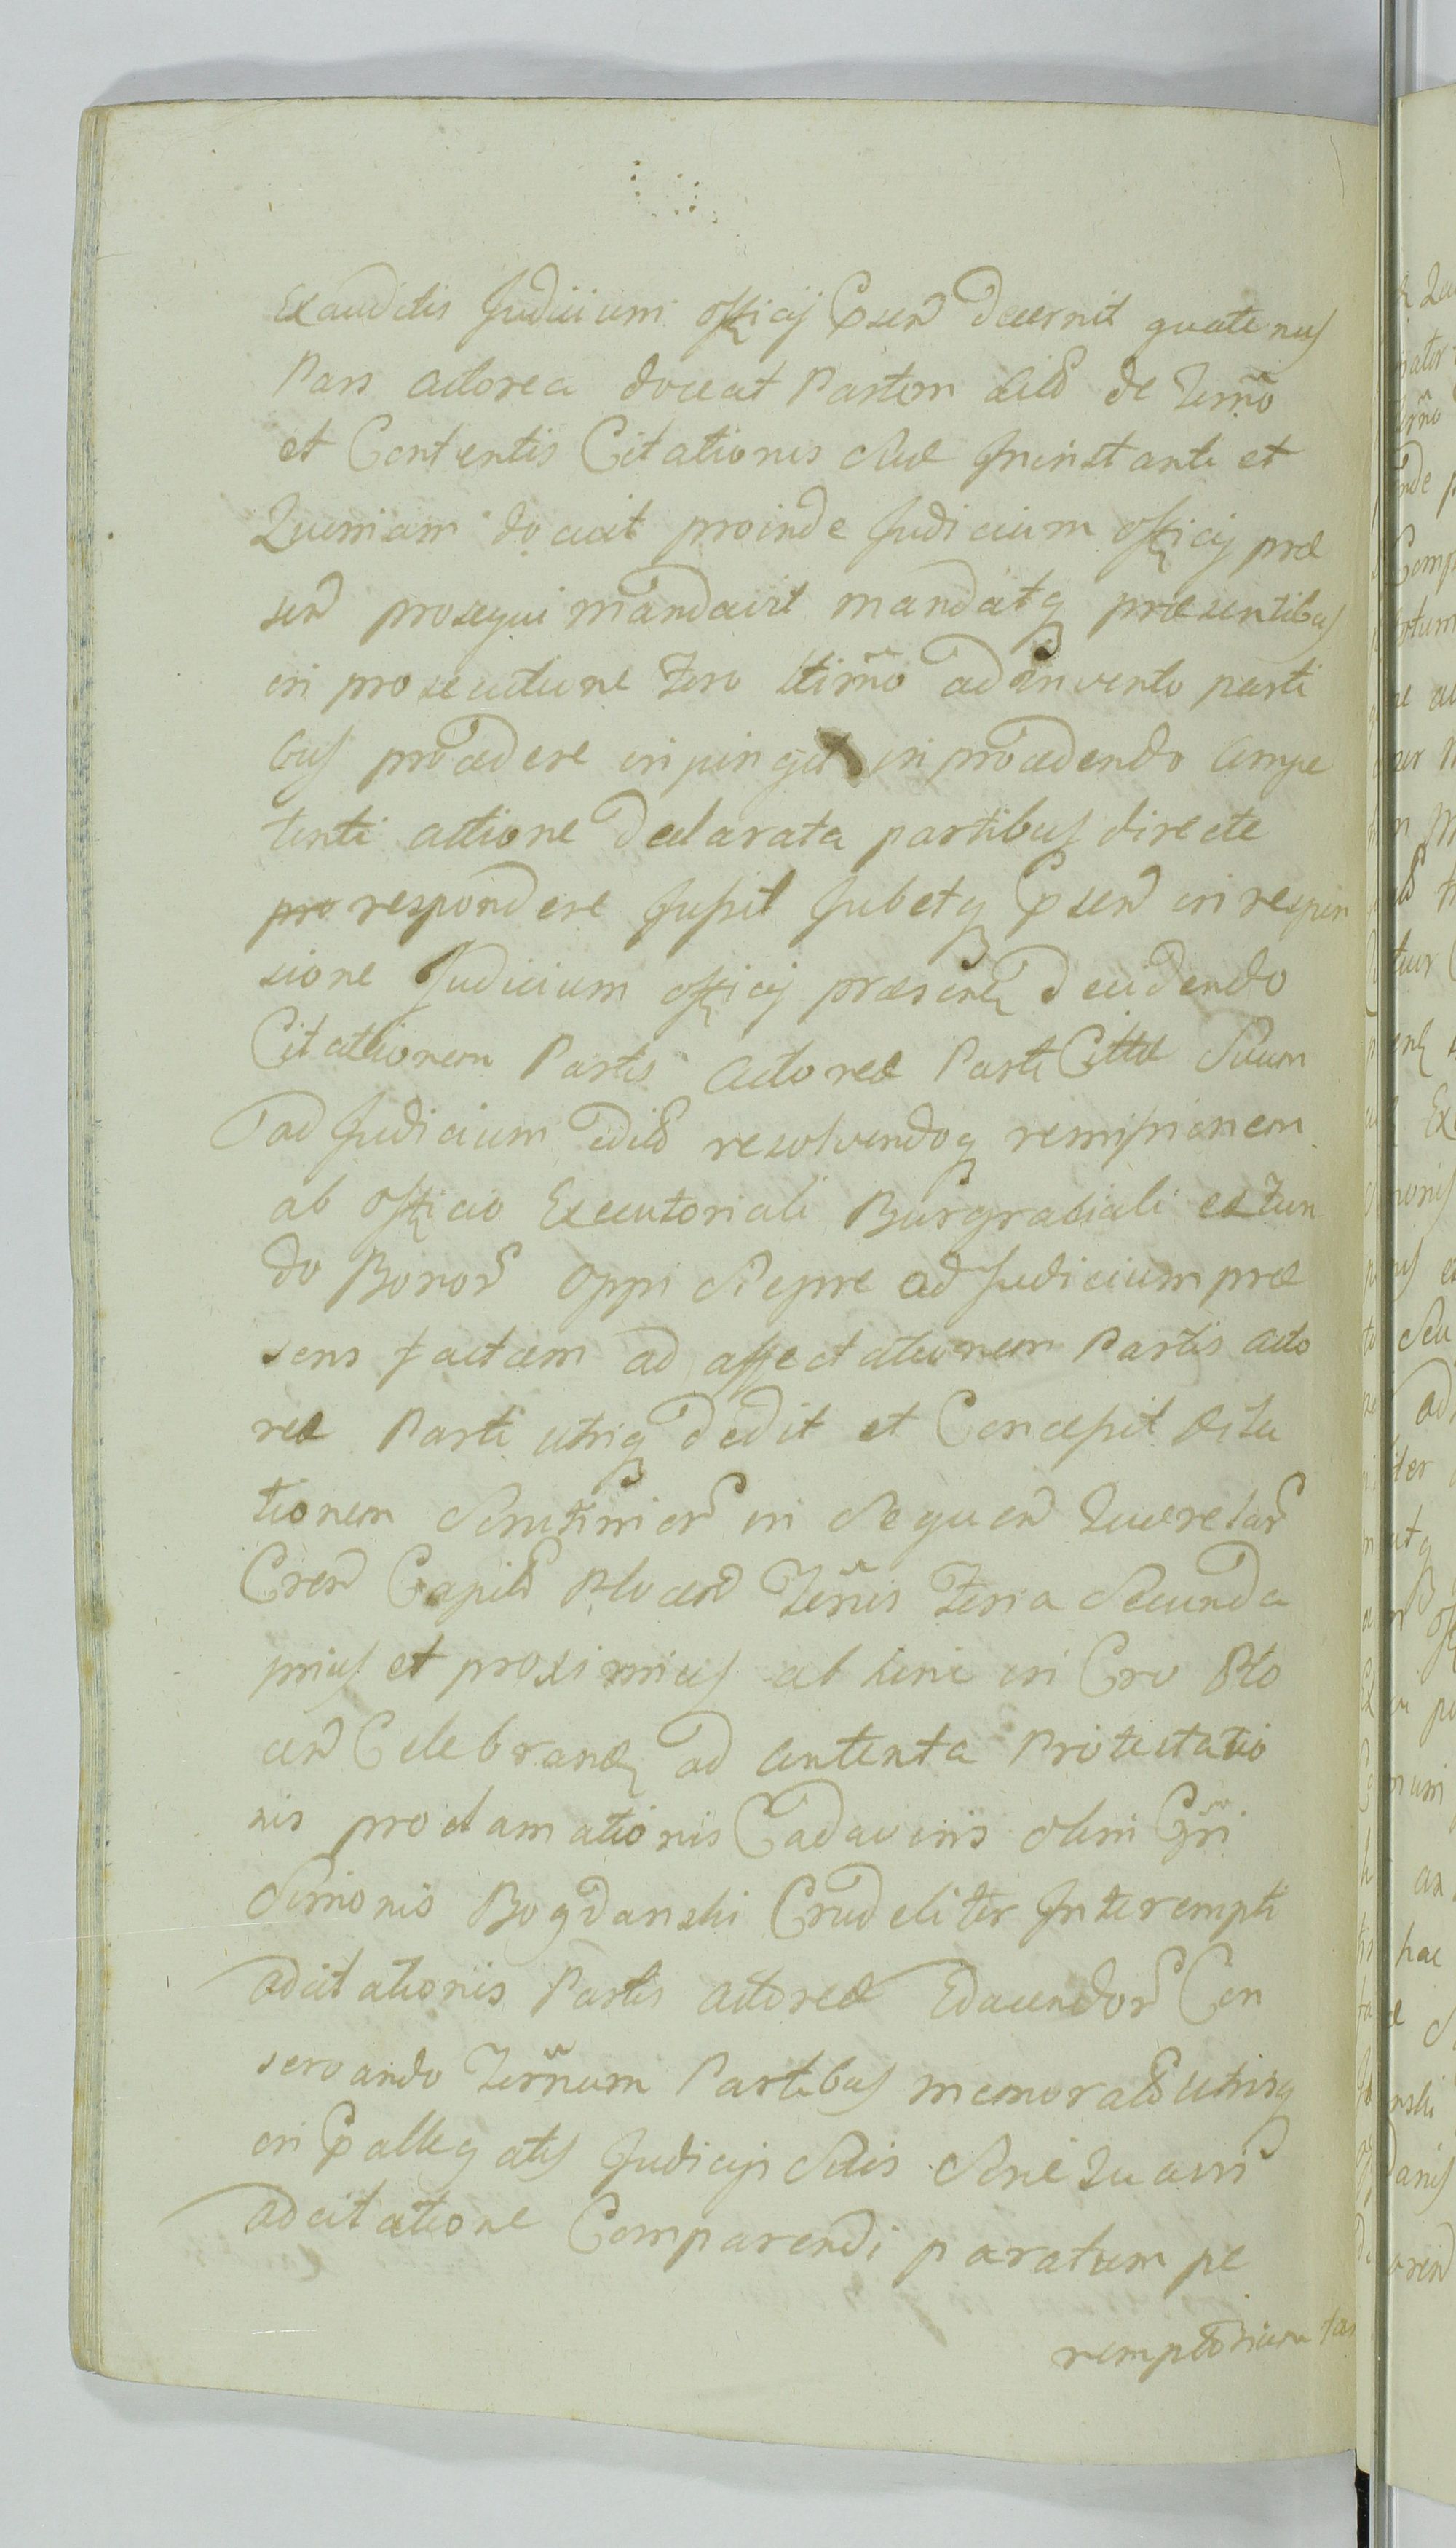 Exauditis Judicium officij Psen decernit quatenus
Pars actorea doceat Partem citd de Termo
et Contentis Citationis suæ Ininstanti et
Quoniam docuit proinde Judicium officij præ
sen prosequi mandavit mandatq præsentibus
in prosecutione Tero ltimo adinvento parti
bus procedere inpingit in procedendo Compe
tenti actione declarata partibus directe
respondere Jussit Jubetq Psen in respon
sione Judicium officij præsens decidendo
Citationem Partis Actoreæ Parti Cittæ suum
ad Judicium editd resolvendoq remissionem
ab officio Executoriali Burgrabiali ex fun
do Bonor Oppi ad Judicium præ
sens factam ad affectationem Partis acto
reæ Parti utriq dedit et Concessit dila
tionem Scrutinior in Sequen Querelar
Cren Capitd Plocen Ternis Feria Secunda
prius et proximius ab hinc in Cro Plo
cen Celebran ad Contenta Protestatio
nis proclamationis Cadaveris olim Gni
Simonis Bogdanski Crudeliter Interempti
adcitationis Partis actoreæ Educendor Con
servando Ternum Partibus memoratd utrisq
in Pallegatis Judicijs suis sine quavis
adcitatione Comparendi paratum pe
remptorium tan